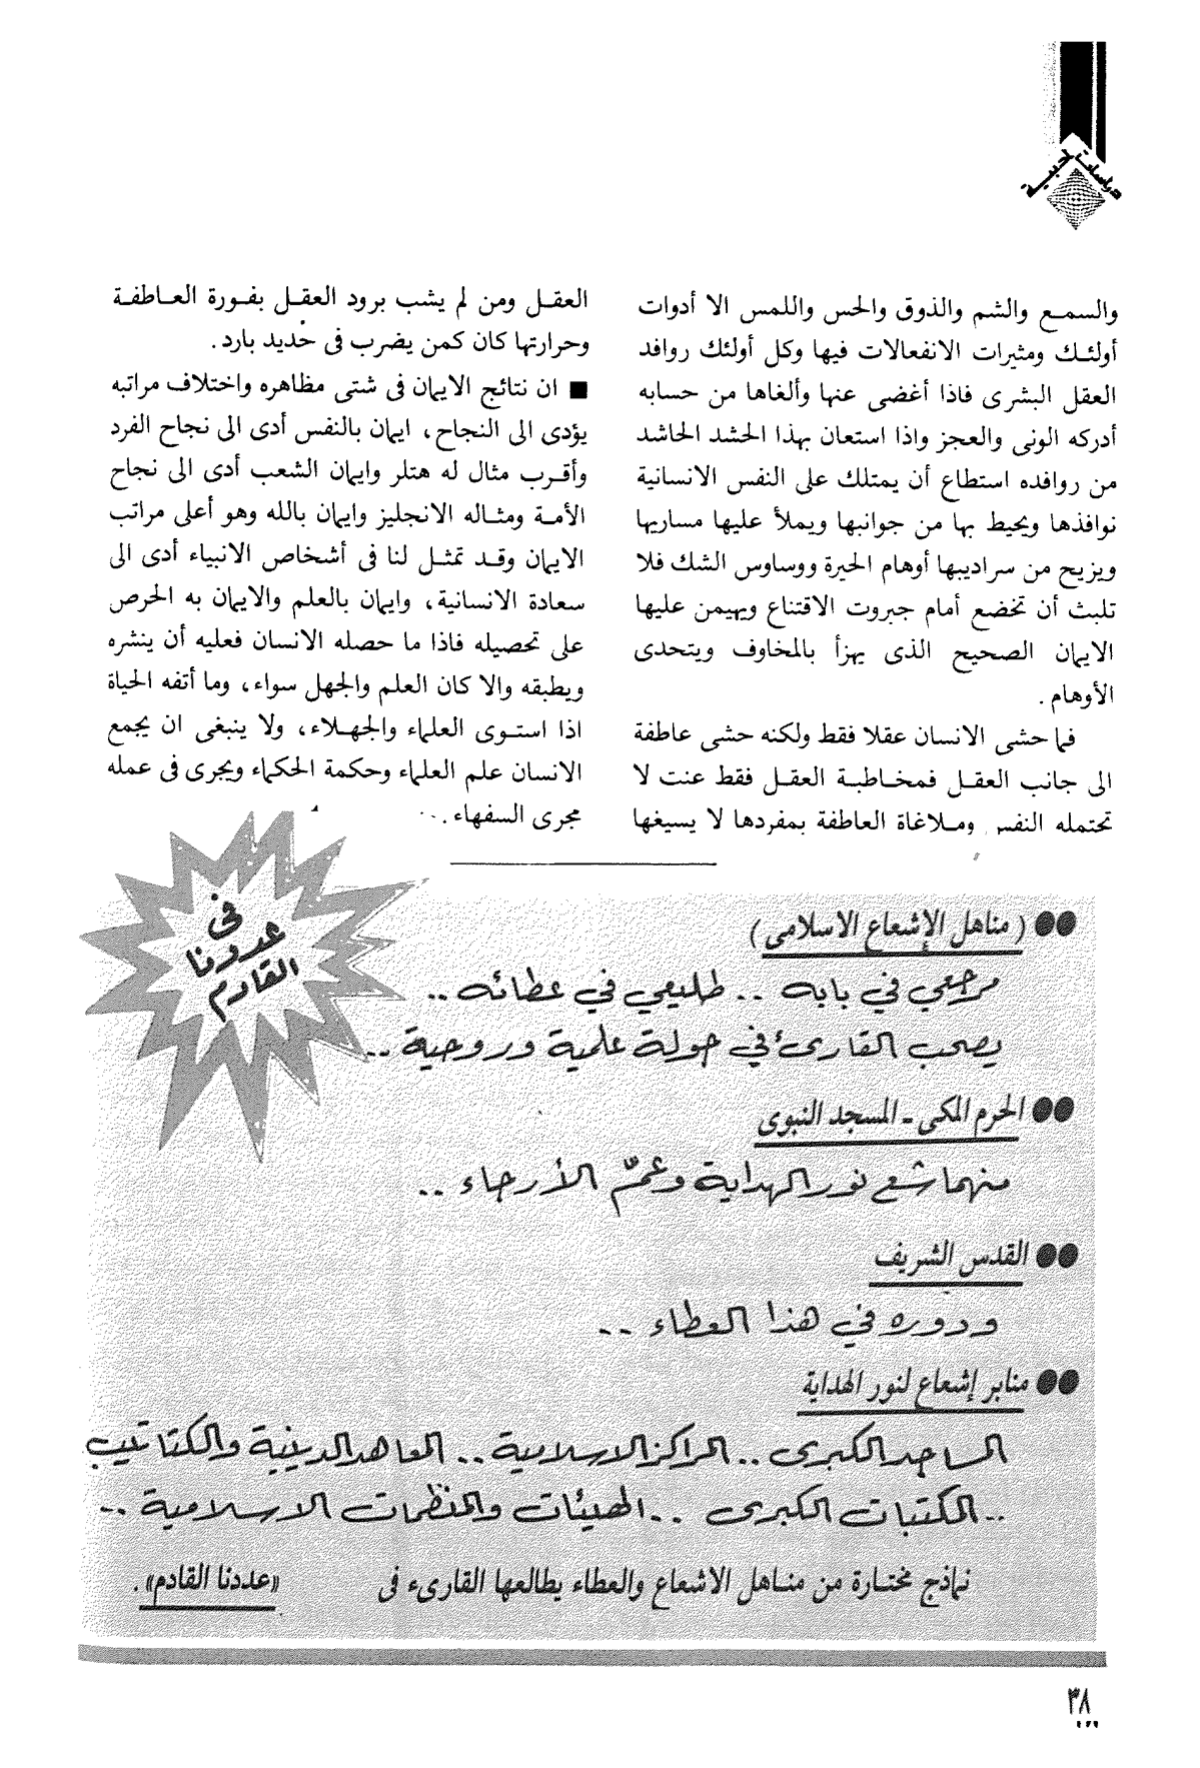 دراسات أدبية
والسمـع والشم والذوق والحس واللمس الا أدوات
أولئـك ومثيرات الانفعالات فيها وكل أولئك روافد
العقل البشرى فاذا أغضى عنها وألغاها من حسابه
أدركه الونى والعجز واذا استعان بهذا الحشد الحاشد
من روافده استطاع أن يمتلك على النفس الانسانية
نوافذها ويحيط بها من جوانبها ويملأ عليها مساربها
ويزيح من سراديبها أوهام الحيرة ووساوس الشك فلا
تلبث أن تخضع أمام جبروت الاقتناع ويهيمن عليها
الايمان الصحيح الذى يهزأ بالمخاوف ويتحدى
الأوهام .
فما حشى الانسان عقلا فقط ولكنه حشى عاطفة
الى جانب العقـل فمخـاطبـة العقـل فقط عنت لا
تحتمله النفس ومـلاغاة العاطفة بمفردها لا يسيغها
العقـل ومن لم يشب برود العقـل بفـورة العـاطفـة
وحرارتها كان كمن يضرب فى حديد بارد .
■ ان نتائج الايمان فى شتى مظاهره واختلاف مراتبه
يؤدى الى النجاح ، ايمان بالنفس أدى الى نجاح الفرد
وأقـرب مثال له هتلر وايمان الشعب أدى الى نجاح
الأمـة ومثـاله الانجليز وايمان بالله وهو أعلى مراتب
الايمان وقـد تمثـل لنا فى أشخاص الانبياء أدى الى
سعادة الانسانية ، وايمان بالعلم والايمان به الحرص
على تحصيله فاذا ما حصله الانسان فعليه أن ينشره
ويطبقه والا كان العلم والجهل سواء ، وما أتفه الحياة
اذا استـوى العلماء والجهـلاء ، ولا ينبغى ان يجمع
الانسان علم العلماء وحكمة الحكماء ويجرى فى عمله
مجرى السفهاء . .
فى
عددنا
القادم
●● ( مناهل الإشعاع الاسلامى )
مرجعي في بابه . . طليعي في عطائه ..
يصحب القارىء في جولة علمية وروحية ..
●● الحرم المكى ـ المسجد النبوى
منهما شع نور الهداية وعمّ الأرجاء ..
●● القدس الشريف
ودوره في هذا العطاء ..
●● منابر إشعاع لنور الهداية
المساجد الكبرى .. المراكز الاسلامية .. المعاهد الدينية والكتاتيب
.. المكتبات الكبرى .. الهيئات والمنظمات الاسلامية ..
نماذج مختـارة من منـاهل الاشعاع والعطاء يطالعها القارىء فى «عددنا القادم» .
٣٨